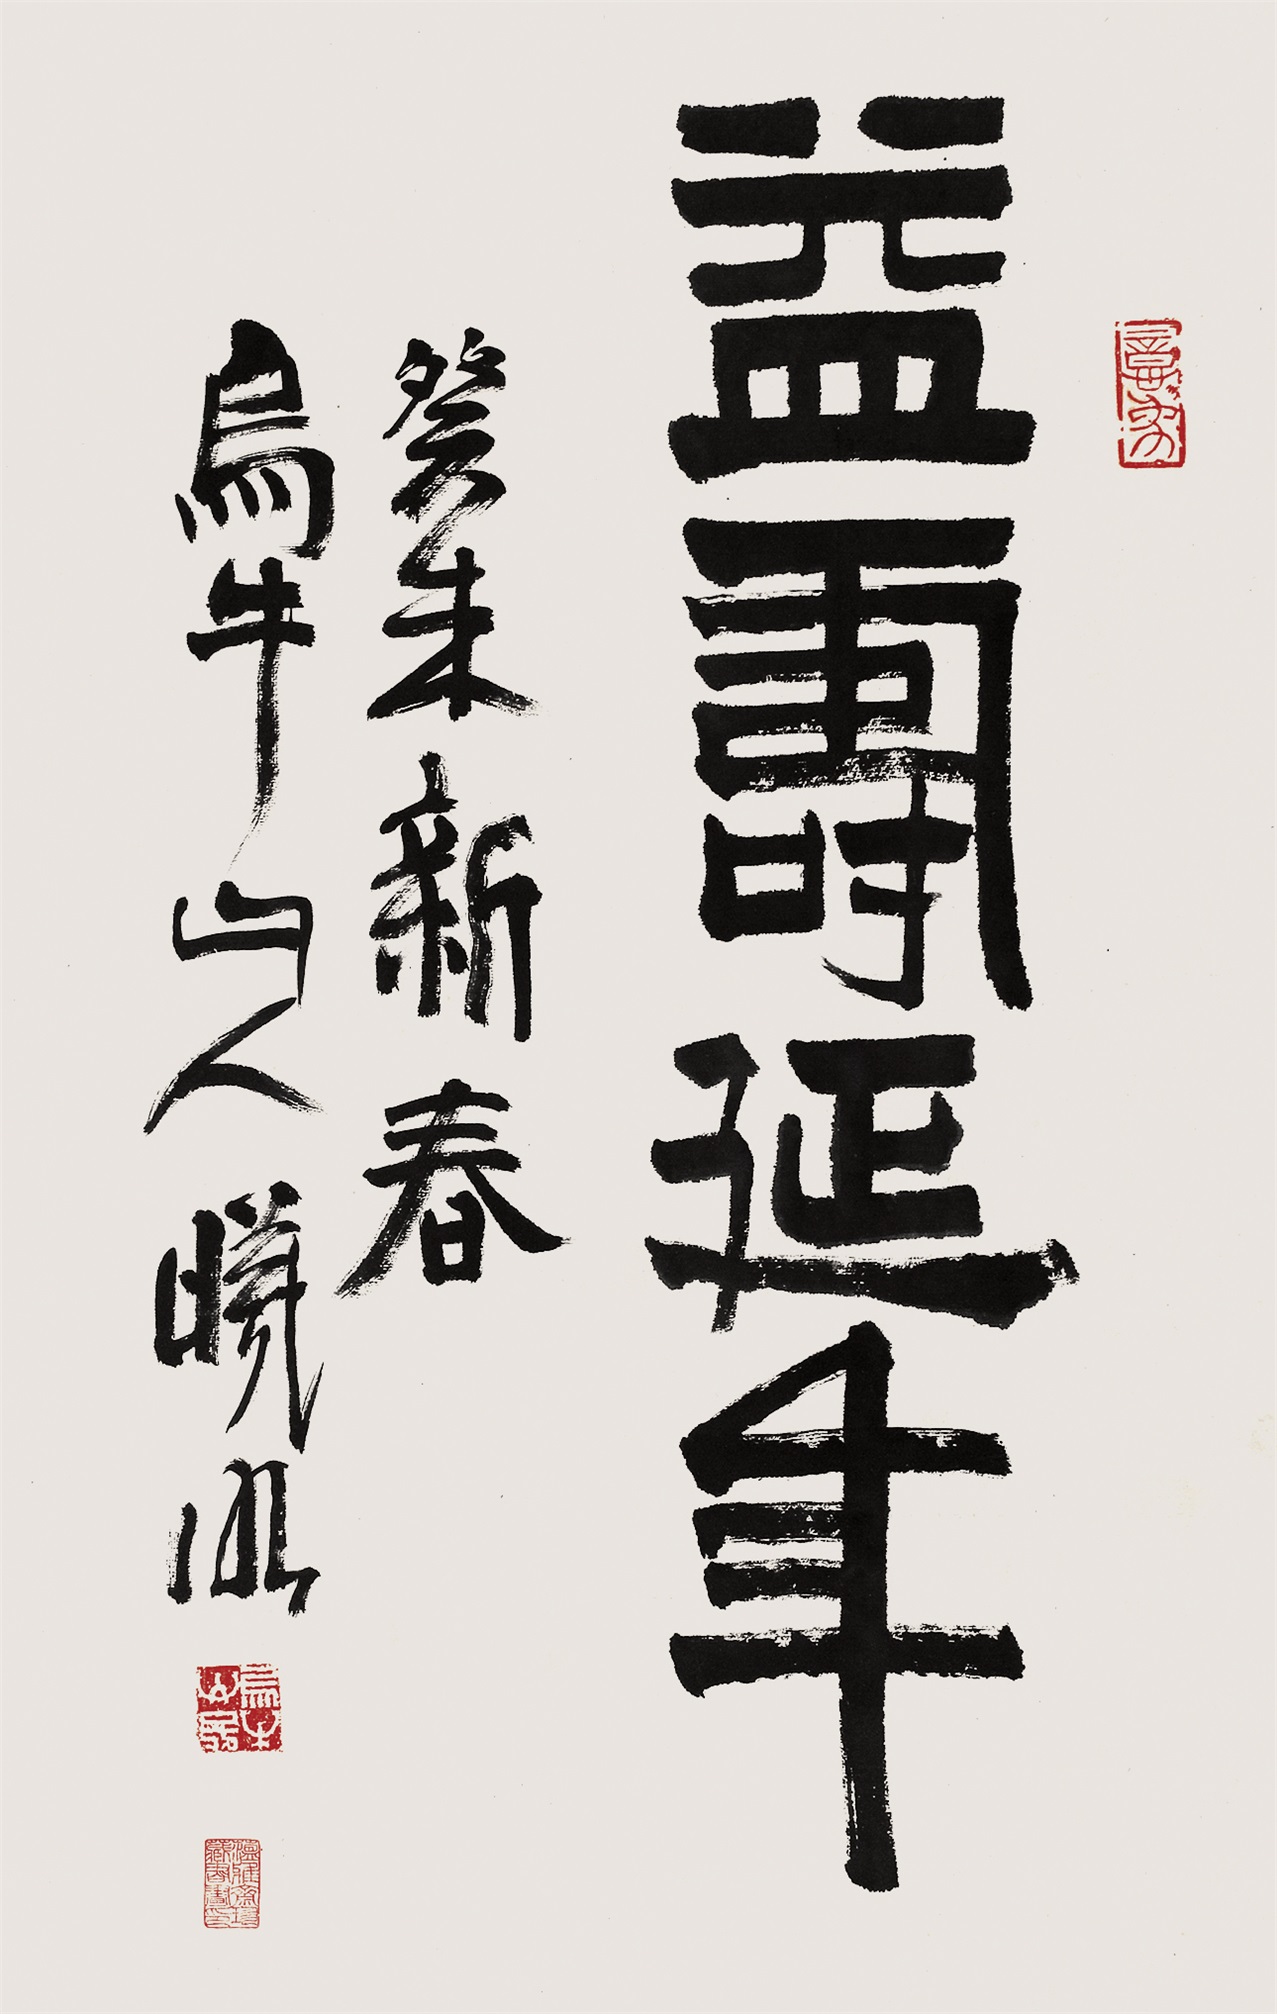 益壽延年
癸未新春
烏牛山人
烏牛山房